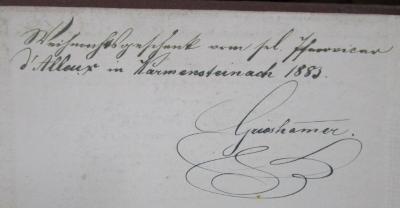 Weihnachtsgeschenk vom sel. Pfarrvicar
d'Alleux in Warmensteinach 1883.
Grieshamer.